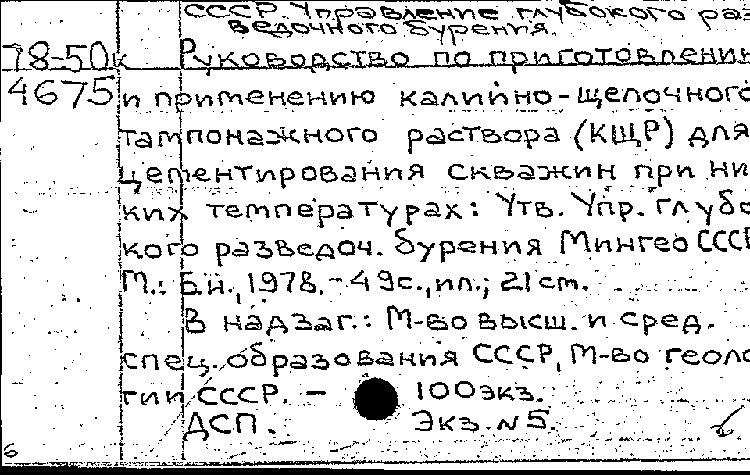 СССР. Управление глубокого раз
ведочного бурения.
78-50к Руководство по приготовлению
4675 и применению калийно-щелочного
тампонажного раствора (КЩР) для
цементирования скважин при ни
ких температурах: Утв. Упр. глубо
кого разведоч. бурения Мингео СССР
М.: Б.и., 1978. - 49с., ил.; 21 cm.
В надзаг.: М-во высш. и сред.
спец. образования СССР, М-во геоло
гии СССР. - 100экз.
ДСП. Экз. N5.
6